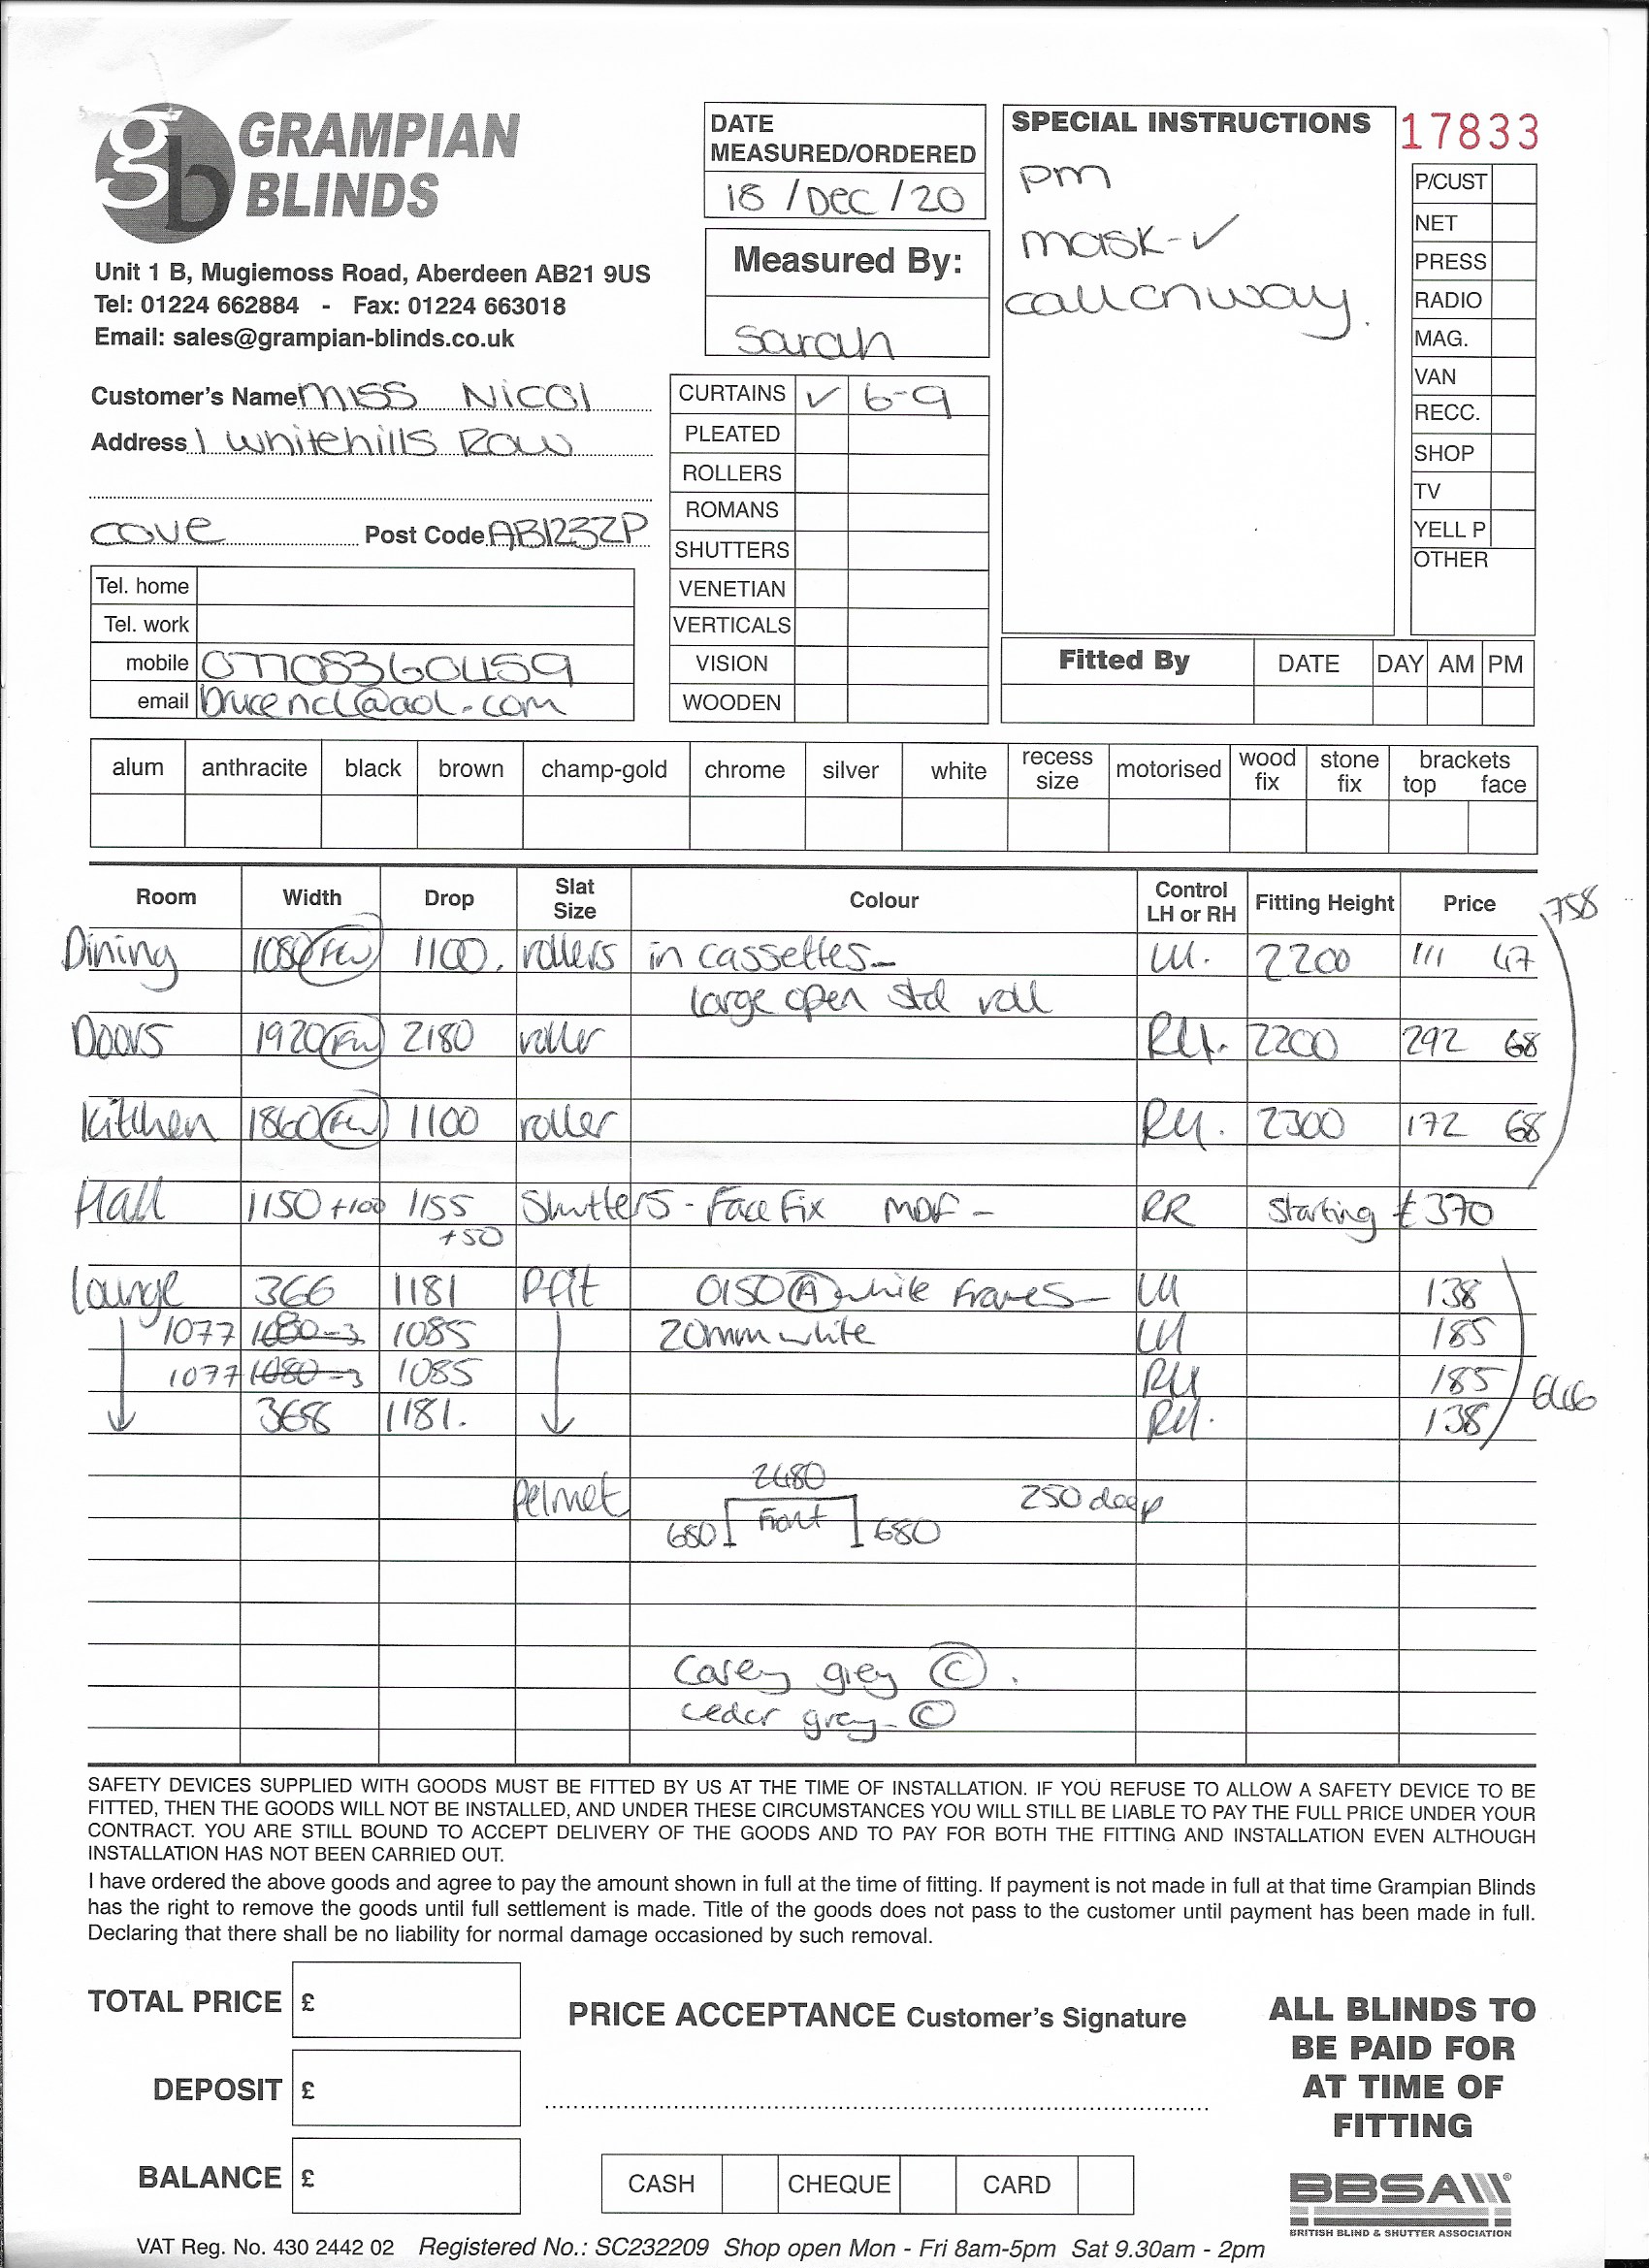 gb GRAMPIAN BLINDS
Unit 1 B, Mugiemoss Road, Aberdeen AB21 9US
Tel: 01224 662884 - Fax: 01224 663018
Email: sales@grampian-blinds.co.uk
Customer's Name Miss Nicol
Address 1 Whitehills Row
Cove Post Code AB123ZP
Tel. home
Tel. work
mobile 07708360459
email brucencl@aol.com
DATE
MEASURED/ORDERED
18 / Dec / 20
Measured By:
Sarah
CURTAINS ✓ 6-9
PLEATED
ROLLERS
ROMANS
SHUTTERS
VENETIAN
VERTICALS
VISION
WOODEN
SPECIAL INSTRUCTIONS
pm
mask-✓
call on way.
17833
P/CUST
NET
PRESS
RADIO
MAG.
VAN
RECC.
SHOP
TV
YELL P
OTHER
Fitted By DATE DAY AM PM
alum anthracite black brown champ-gold chrome silver white recess size motorised wood fix stone fix brackets top face
Room Width Drop Slat Size Colour Control LH or RH Fitting Height Price 758
Dining 1080 FW 1100. rollers in cassettes- LH. 2200 111 47
large open std roll
Doors 1920 FW 2180 roller RH. 2200 292 68
Kitchen 1860 FW 1100 roller RH. 2300 172 68
Hall 1150 +100 1155 Shutters - Face Fix MDF - RR Starting £370
+50
Lounge 366 1181 Pfit 0150 A white frames- LH 138
1077 1080-3 1085 20mm white LH 185
1077 1080-3 1085 RH 185 646
368 1181. RH. 138
2480
Pelmet Front 250 deep
680 680
Casey grey C.
Ceder grey- C
SAFETY DEVICES SUPPLIED WITH GOODS MUST BE FITTED BY US AT THE TIME OF INSTALLATION. IF YOU REFUSE TO ALLOW A SAFETY DEVICE TO BE
FITTED, THEN THE GOODS WILL NOT BE INSTALLED, AND UNDER THESE CIRCUMSTANCES YOU WILL STILL BE LIABLE TO PAY THE FULL PRICE UNDER YOUR
CONTRACT. YOU ARE STILL BOUND TO ACCEPT DELIVERY OF THE GOODS AND TO PAY FOR BOTH THE FITTING AND INSTALLATION EVEN ALTHOUGH
INSTALLATION HAS NOT BEEN CARRIED OUT.
I have ordered the above goods and agree to pay the amount shown in full at the time of fitting. If payment is not made in full at that time Grampian Blinds
has the right to remove the goods until full settlement is made. Title of the goods does not pass to the customer until payment has been made in full.
Declaring that there shall be no liability for normal damage occasioned by such removal.
TOTAL PRICE £
DEPOSIT £
BALANCE £
PRICE ACCEPTANCE Customer's Signature
CASH CHEQUE CARD
ALL BLINDS TO
BE PAID FOR
AT TIME OF
FITTING
BBSA
BRITISH BLIND & SHUTTER ASSOCIATION
VAT Reg. No. 430 2442 02 Registered No.: SC232209 Shop open Mon - Fri 8am-5pm Sat 9.30am - 2pm